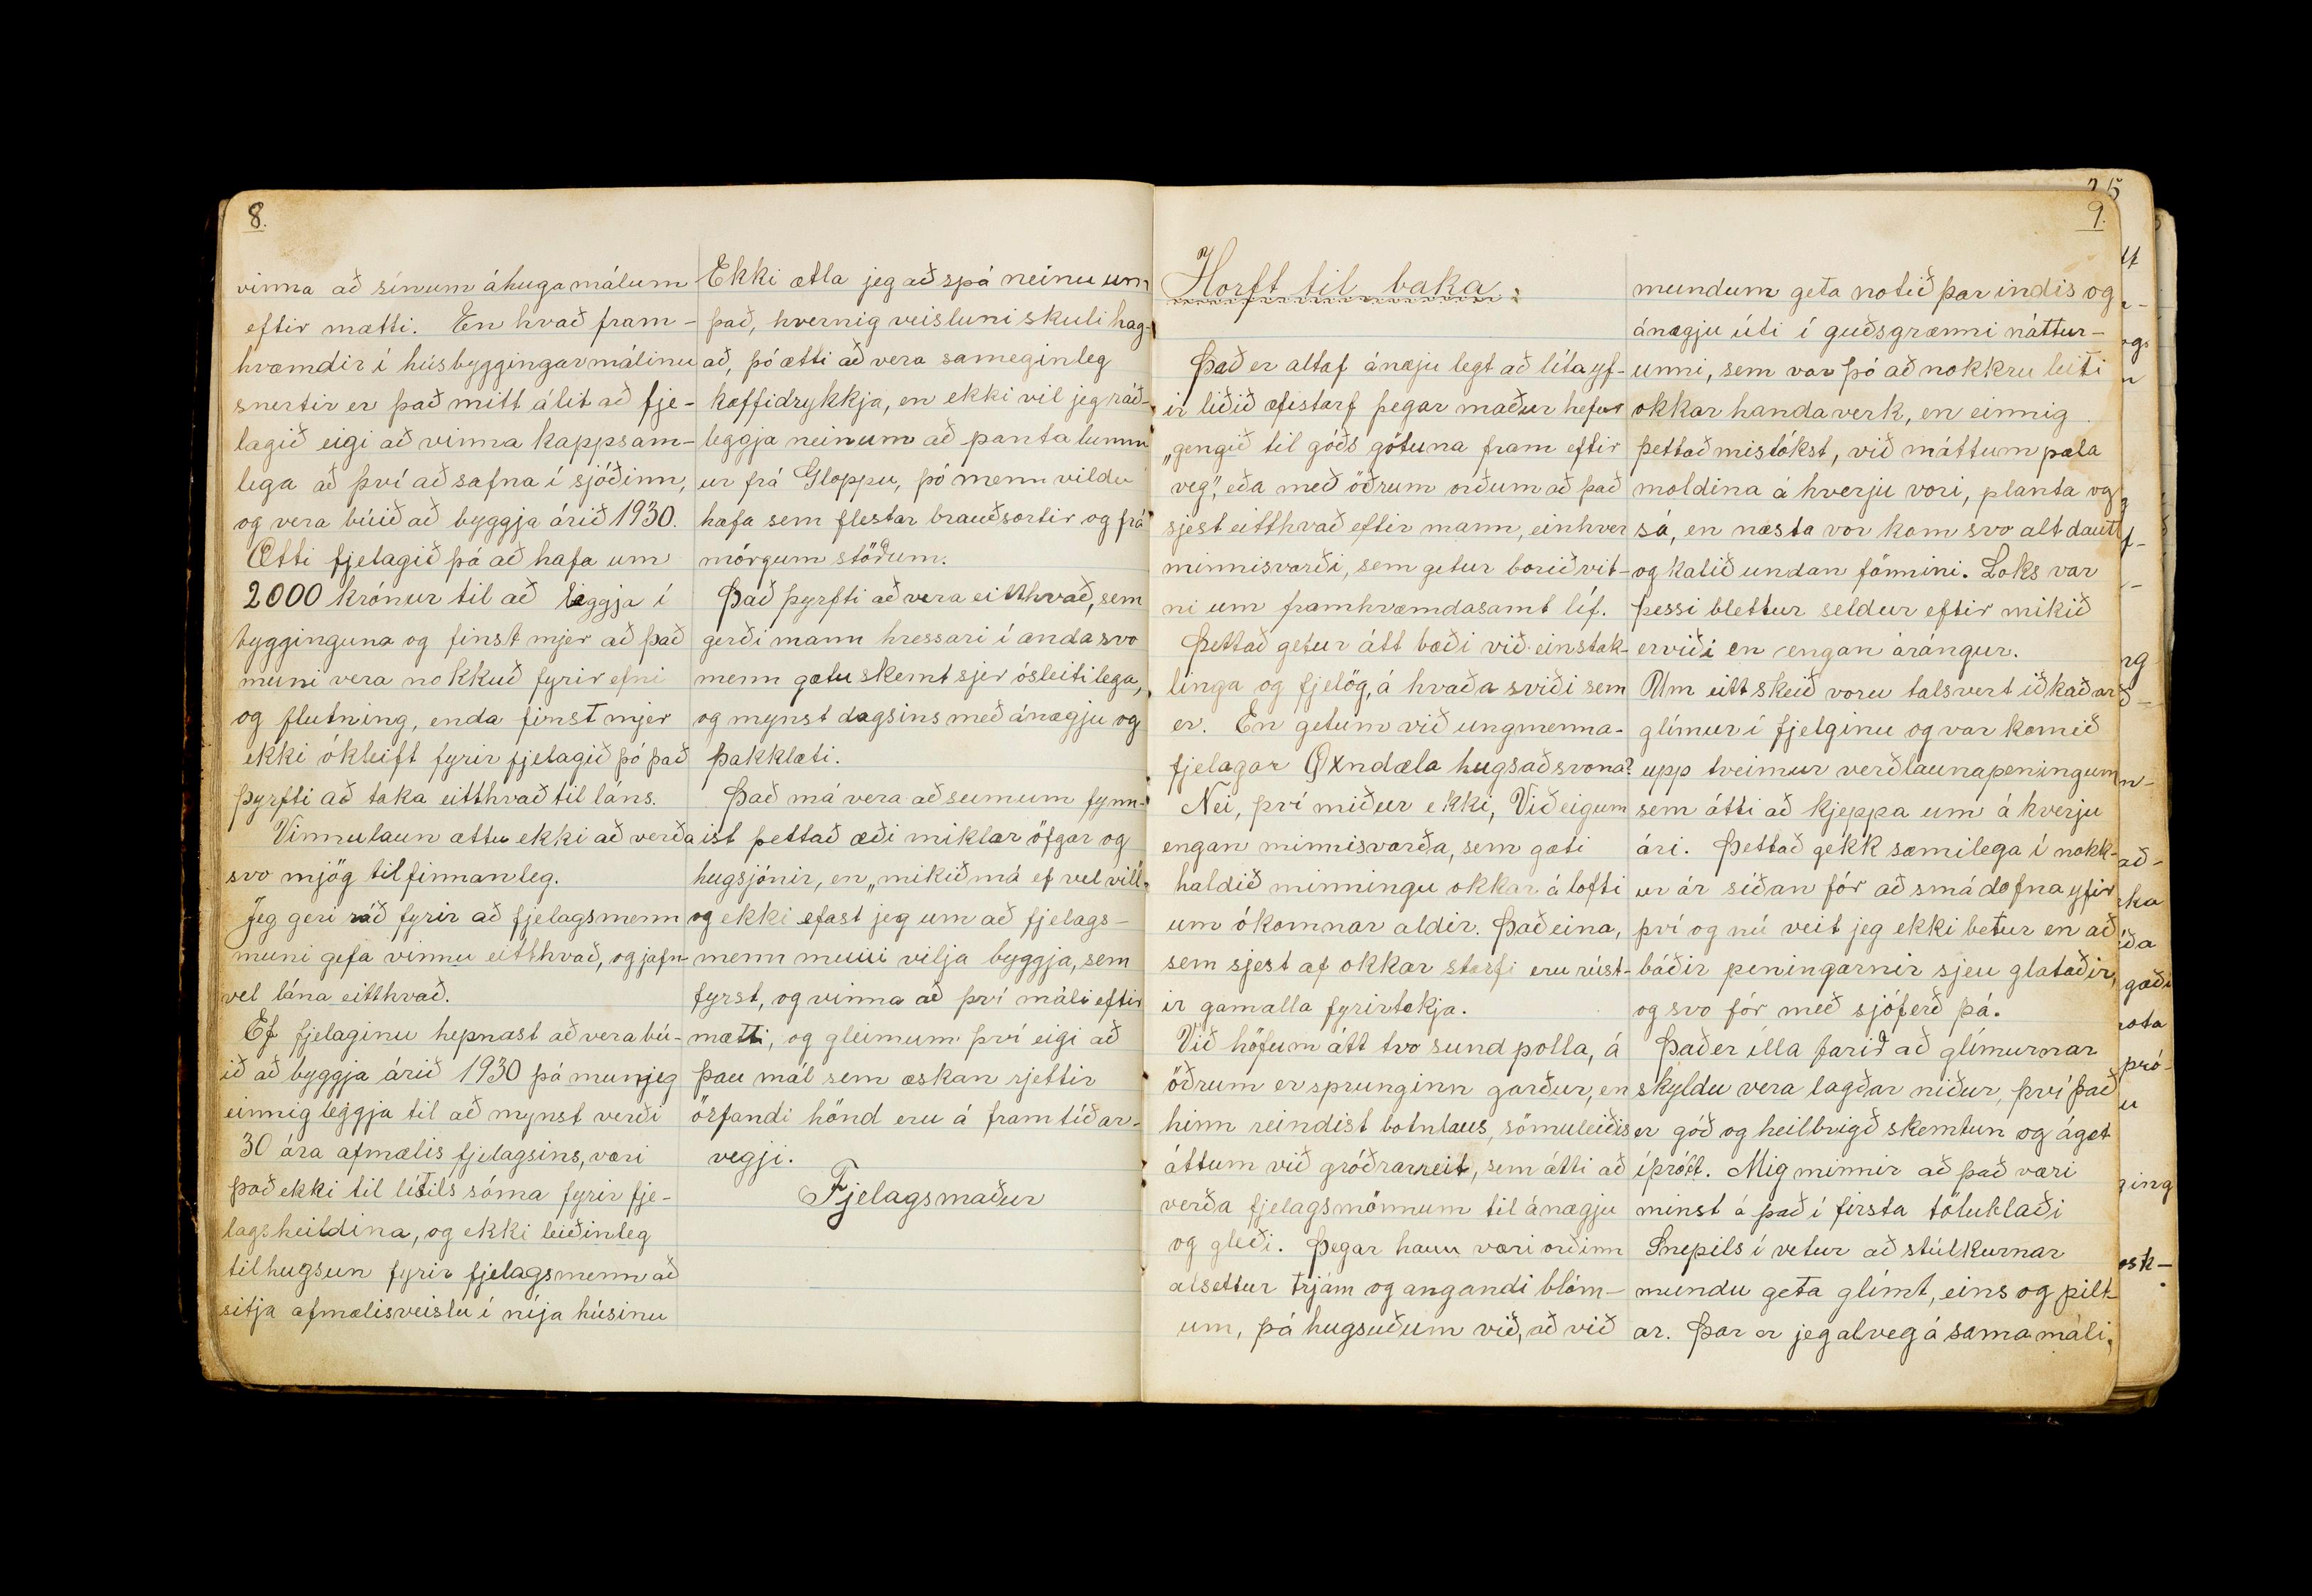 8.
vinna að sínum áhugamálum
eftir mætti. En hvað fram-
hvæmdir í húsbyggingarmálinu
snertir er það mitt álit að fje-
lagið eigi að vinna kappsam-
lega að því að safna í sjóðinn,
og vera búið að byggja árið 1930.
Ætti fjelagið þá að hafa um
2000 krónur til að leggja í
bygginguna og finst mjer að það
muni vera nokkuð fyrir efni
og flutning, enda finst mjer
ekki ókleift fyrir fjelagið þó það
þyrfti að taka eitthvað til láns.
Vinnulaun ættu ekki að verða
svo mjög tilfinnanleg.
Jeg geri ráð fyrir að fjelagsmenn
muni gefa vinnu eitthvað, og jafn-
vel lána eitthvað.
Ef fjelaginu hepnast að vera bú-
ið að byggja árið 1930 þá mun jeg
einnig leggja til að mynst verði
30 ára afmælis fjelagsins, væri
það ekki til lítils sóma fyrir fje-
lagsheildina, og ekki leiðinleg
tilhugsun fyrir fjelagsmenn að
sitja afmælisveislu í níja húsinu
Ekki ætla jeg að spá neinu um
það, hvernig veisluni skuli hag-
að, þó ætti að vera sameginleg
kaffidrykkja, en ekki vil jeg ráð-
leggja neinum að panta lumm
ur frá Gloppu, þó menn vildu
hafa sem flestar brauðsortir og frá
mörgum stöðum.
Það þyrfti að vera eitthvað, sem
gerði mann hressari í anda svo
menn gætu skemt sjer ósleitilega,
og mynst dagsins með ánægju og
þakklæti.
Það má vera að sumum fynn-
ist þettað æði miklar öfgar og
hugsjónir, en „mikið má ef vel vill"
og ekki efast jeg um að fjelags-
menn muni vilja byggja, sem
fyrst, og vinna að því máli eftir
mætti, og gleimum því eigi að
þau mál sem æskan rjettir
örfandi hönd eru á framtíðar-
vegji.
Fjelagsmaður
25
9.
Horft til baka:
Það er altaf ánæju legt að líta yf-
ir liðið æfistarf þegar maður hefur
„gengið til góðs götuna fram eftir
veg", eða með öðrum orðum að það
sjest eitthvað eftir mann, einhver
minnisvarði, sem getur borið vit-
ni um framhvæmdasamt líf.
Þettað getur átt bæði við einstak-
linga og fjelög, á hvaða sviði sem
er. En getum við ungmenna-
fjelagar Öxndæla hugsað svona?
Nei, því miður ekki, Við eigum
engan minnisvarða, sem gæti
haldið minningu okkar á lofti
um ókomnar aldir. Það eina,
sem sjest af okkar starfi eru rúst-
ir gamalla fyrirtækja.
Við höfum átt tvo sundpolla, á
öðrum er sprunginn garður, en
hinn reindist botnlaus, sömuleiðis
áttum við gróðrarreit, sem átti að
verða fjelagsmönnum til ánægju
og gleði. Þegar hann væri orðinn
alsettur trjám og angandi blóm-
um, þá hugsuðum við, að við
mundum geta notið þar indis og
ánægju úti í guðsgrænni náttur-
unni, sem var þó að nokkru leiti
okkar handaverk, en einnig
þettað mistókst, við máttum pæla
moldina á hverju vori, planta og
sá, en næsta vor kom svo alt dautt
og kalið undan fönnini. Loks var
þessi blettur seldur eftir mikið
erviði en engan árángur.
Um eitt skeið voru talsvert iðkaðar
glímur í fjelginu og var komið
upp tveimur verðlaunapeningum
sem átti að kjeppa um á hverju
ári. Þettað gekk sæmilega í nokk-
ur ár síðan fór að smá dofna yfir
því og nú veit jeg ekki betur en að
báðir peningarnir sjeu glataðir,
og svo fór með sjóferð þá.
Það er illa farið að glímurnar
skyldu vera lagðar niður, því það
er góð og heilbrigð skemtun og ágæt
íþrótt. Mig minnir að það væri
minst á það í firsta tölublaði
Snepils í vetur að stúlkurnar
mundu geta glímt, eins og pilt-
ar. Þar er jeg alveg á sama máli,